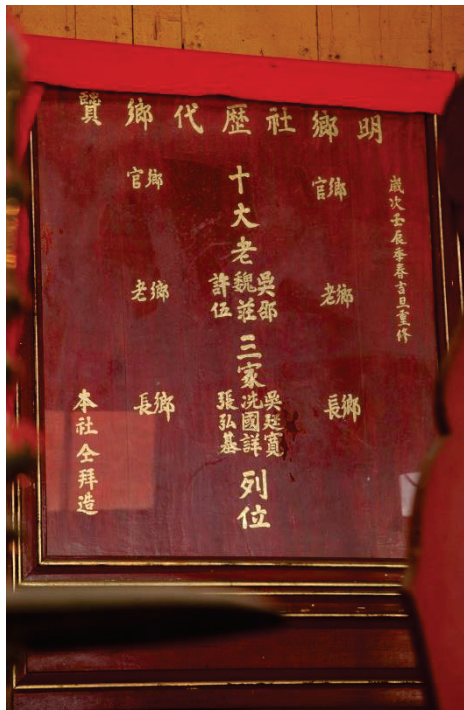 明鄉社歷代鄉賢
歲次壬辰季春吉旦重修
鄉官
鄉老
鄉長
十大老
吳邵
魏莊
許伍
三家
吳廷寬
冼國詳
張弘基
列位
鄉官
鄉老
鄉長
本社仝拜造